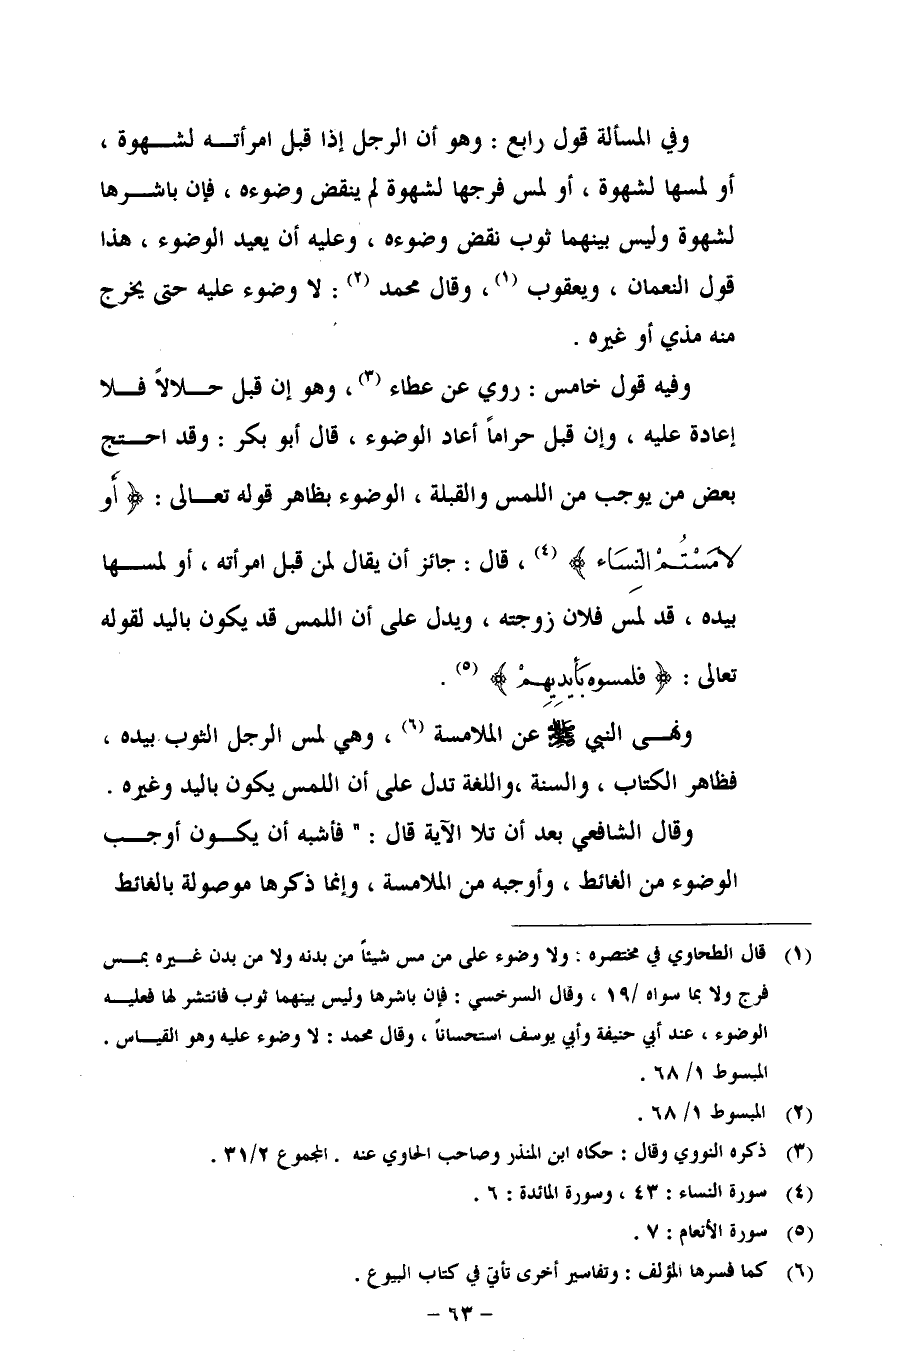 وفي المسألة قول رابع : وهو أن الرجل إذا قبل امرأتــه لشـــهوة ،
أو لمسها لشهوة ، أو لمس فرجها لشهوة لم ينقض وضوءه ، فإن باشـــرها
لشهوة وليس بينهما ثوب نقض وضوءه ، وعليه أن يعيد الوضوء ، هذا
قول النعمان ، ويعقوب (١) ، وقال محمد (٢) : لا وضوء عليه حتى يخرج
منه مذي أو غيره .
وفيه قول خامس : روي عن عطاء (٣) ، وهو إن قبل حـــلالاً فـــلا
إعادة عليه ، وإن قبل حراماً أعاد الوضوء ، قال أبو بكر : وقد احـــتج
بعض من يوجب من اللمس والقبلة ، الوضوء بظاهر قوله تعـــالى : ﴿ أَو
لَامَسْتُمُ النِّسَاء ﴾ (٤) ، قال : جائز أن يقال لمن قبل امرأته ، أو لمســـها
بيده ، قد لمس فلان زوجته ، ويدل على أن اللمس قد يكون باليد لقوله
تعالى : ﴿ فلمسوه بأيديهمْ ﴾ (٥) .
ونهـــى النبي ﷺ عن الملامسة (٦) ، وهي لمس الرجل الثوب بيده ،
فظاهر الكتاب ، والسنة ،واللغة تدل على أن اللمس يكون باليد وغيره .
وقال الشافعي بعد أن تلا الآية قال : " فأشبه أن يكـــون أوجـــب
الوضوء من الغائط ، وأوجبه من الملامسة ، وإنما ذكرها موصولة بالغائط
(١) قال الطحاوي في مختصره : ولا وضوء على من مس شيئاً من بدنه ولا من بدن غـــيره بمـــس
فرج ولا بما سواه /١٩ ، وقال السرخسي : فإن باشرها وليس بينهما ثوب فانتشر لها فعليـــه
الوضوء ، عند أبي حنيفة وأبي يوسف استحساناً ، وقال محمد : لا وضوء عليه وهو القيـــاس .
المبسوط ١/ ٦٨ .
(٢) المبسوط ١/ ٦٨ .
(٣) ذكره النووي وقال : حكاه ابن المنذر وصاحب الحاوي عنه . المجموع ٣١/٢ .
(٤) سورة النساء : ٤٣ ، وسورة المائدة : ٦ .
(٥) سورة الأنعام : ٧ .
(٦) كما فسرها المؤلف : وتفاسير أخرى تأتي في كتاب البيوع .
- ٦٣ -